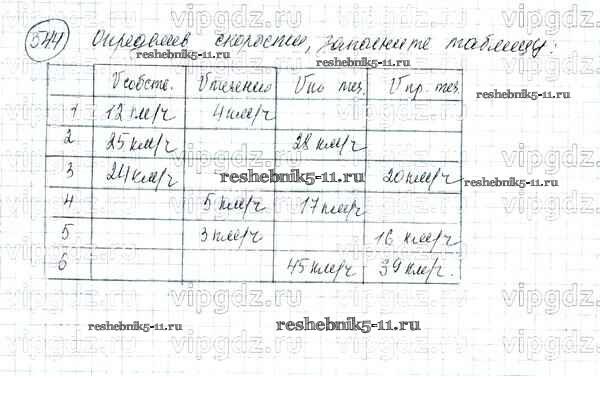 544 Определив скорости, заполните таблицу:
Vсобств. Vтечения Vпо теч. Vпр. теч.
1 12 км/ч 4 км/ч
2 25 км/ч 28 км/ч
3 24 км/ч 20 км/ч
4 5 км/ч 17 км/ч
5 3 км/ч 16 км/ч
6 45 км/ч 39 км/ч.
vipgdz.com
reshebnik5-11.ru